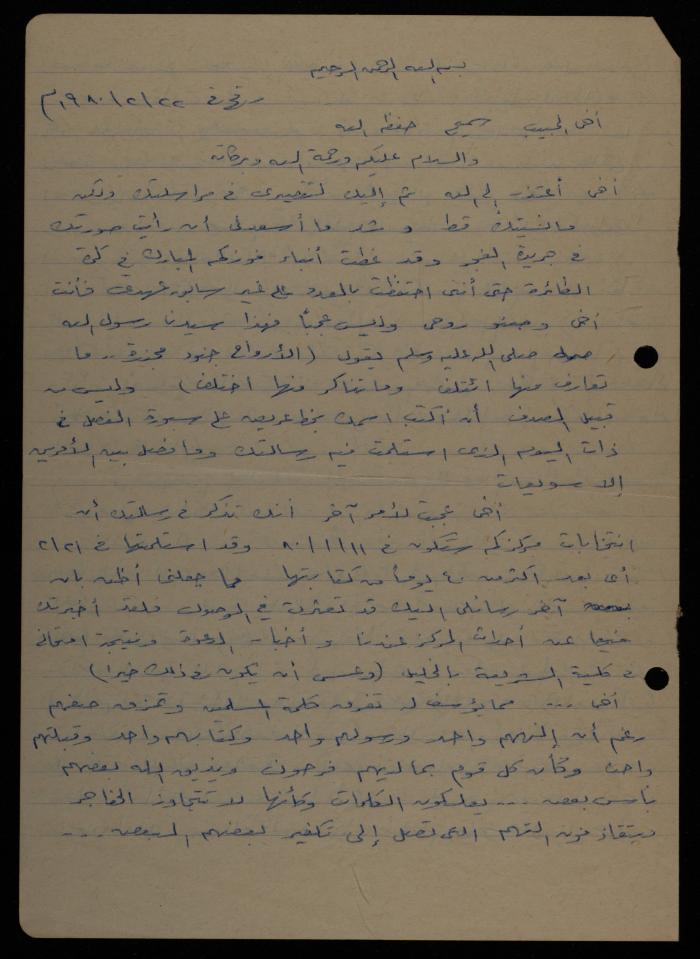 بسم الله الرحمن الرحيم
رفح في ٢٢/٢/١٩٨٠م
أخي الحبيب سميح حفظه الله
والسلام عليكم ورحمة الله وبركاته
أخي أعتذر إلى الله ثم إليك لتقصيري في مراسلتك ولكن
ما نسيتك قط وشد ما أسعدني أن رأيت صورتك
في جريدة الفجر وقد غطت أنباء فوزكم المبارك في كرة
الطائرة حتى أنني احتفظت بالعدد على غير سابق عهدي فأنت
أخي وصنو روحي وليس عجباً فهذا سيدنا رسول الله
صلى الله عليه وسلم يقول (الأرواح جنود مجندة .. ما
تعارف منها ائتلف وما تناكر منها اختلف) وليس من
قبيل الصدف أن أكتب اسمك بخط عريض على سبورة الفصل في
ذات اليوم الذي استلمت فيه رسالتك وما فصل بين الأمرين
إلا سويعات
أخي عجبت لأمر آخر أنك تذكر في رسالتك أن
انتخابات مركزكم ستكون في ١١/١/٨٠ وقد استلمتها في ٢١/٢
أي بعد أكثر من ٤٠ يوماً من كتابتها مما جعلني أظن بأن
آخر رسائلي إليك قد تعثرت في الوصول فلقد أخبرتك
فيها عن أحداث المركز عندنا وأخبار الدعوة ونتيجة امتحاني
في كلية الشريعة بالخليل (وعسى أن يكون في ذلك خيرا)
أخي ... مما يؤسف له تفرق كلمة المسلمين وتمزق صفهم
رغم أن إلههم واحد ورسولهم واحد وكتابهم واحد وقبلتهم
واحدة وكأن كل قوم بما لديهم فرحون ويذيق الله بعضهم
بأس بعض ... يعلكون الكلمات وكأنها لا تتجاوز الحناجر
ويتقاذفون التهم التي تصل إلى تكفير بعضهم البعض ...